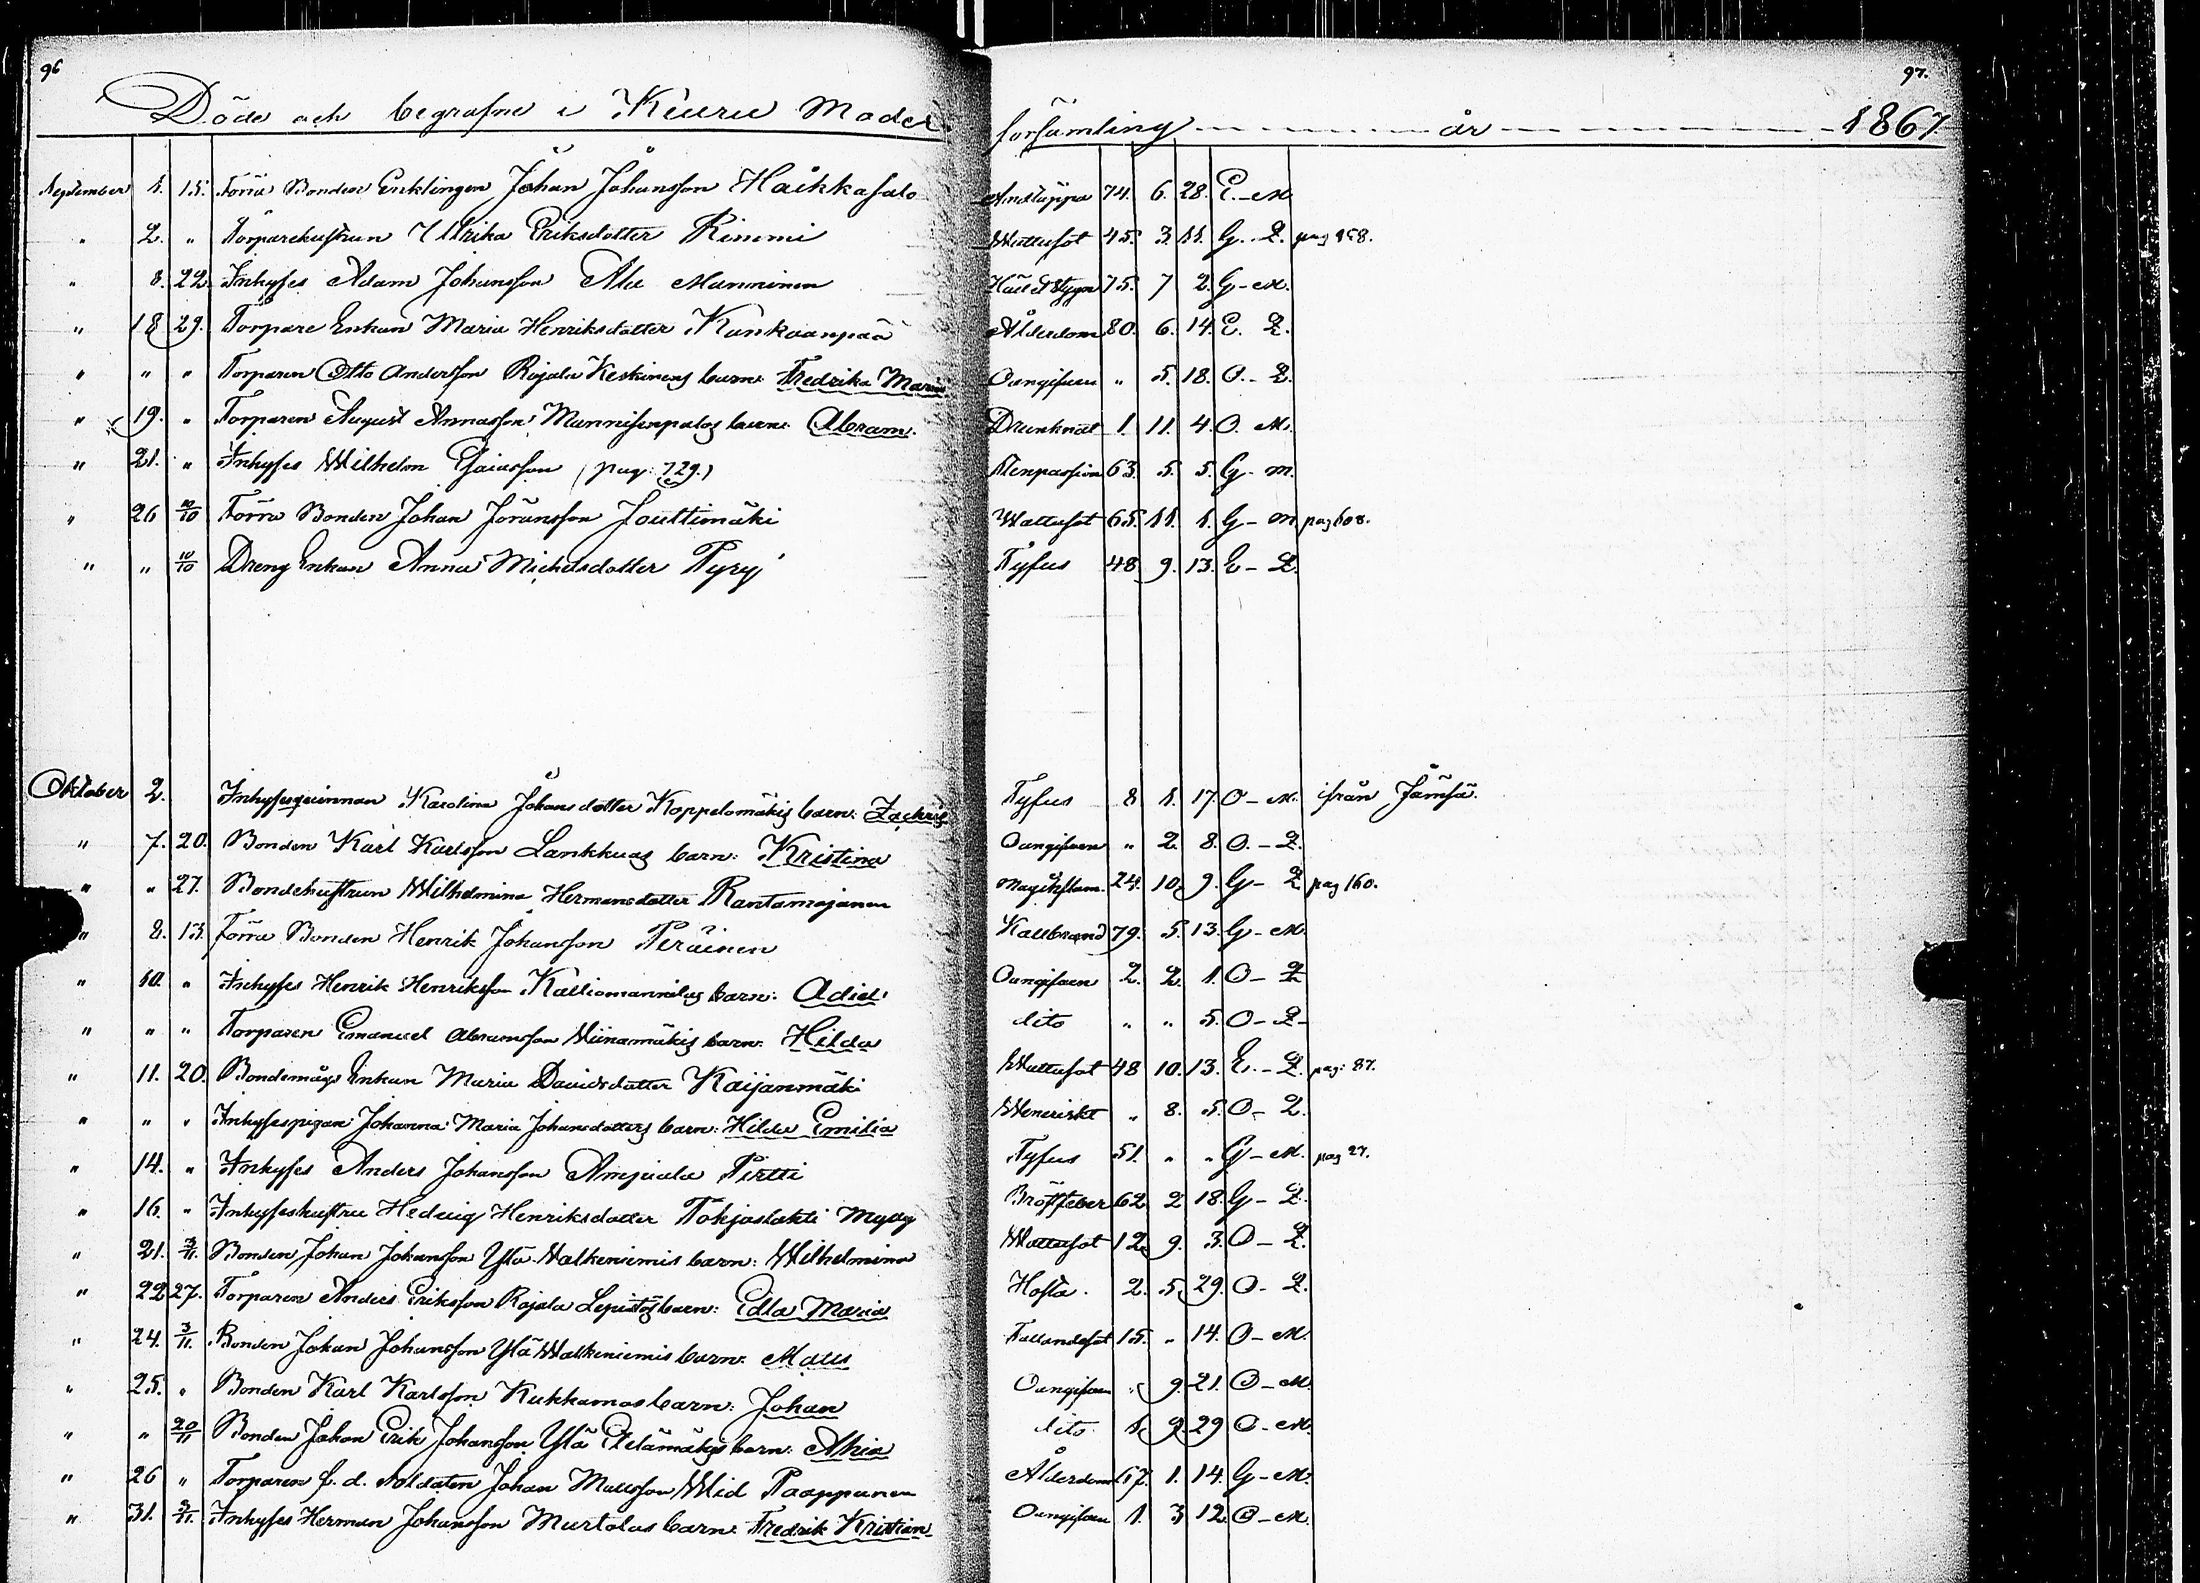 96
97.
Döde och begrafne i Keuru Moder församling år 1867
September 1. 15. Förra Bonden Enklingen Johan Johansson Haikkasalo Andtäppa 74. 6. 28. E. - M.
" 2. " Torparehustrun Ulrika Eriksdotter Rimmi Wattusot 45. 3. 11. G. - Q. pag 958.
" 8. 22. Inhyses Adam Johansson Ala Manninen Håll & Stygn 75. 7 2. G - M.
" 18 29. Torpare Enkan Maria Henriksdotter Kunkaanpää Ålderdom 80. 6. 14. E. Q.
" " " Torparen Otto Andersson Rajala Keskinens barn: Fredrika Maria Oangifven " 5. 18. O. - Q.
" 19. " Torparen August Annasson Mannisenpalos barn: Abram. Drunknat 1. 11. 4 O. M.
" 21. " Inhyses Wilhelm Esaiasson (pag: 729.) Stenpassion 63. 5. 5. G - m.
" 26 10/10 Förra Bonden Johan Göransson Jouttimäki Wattusot 65. 11. 1. G - m pag 608.
" " 10/10 Dreng Enkan Anna Michelsdotter Pyry Tyfus 48 9. 13. E - Q.
Oktober 2. Inhysesqvinnan Karolina Johansdotter Koppelomäkis barn: Zachris Tyfus 8 1. 17. O - M. ifrån Jämsä.
" 7. 20. Bonden Karl Karlsson Lankkuas barn: Kristina Oangifven " 2. 8. O. - Q.
" " 27. Bondehustrun Wilhelmina Hermansdotter Rantamajanen 24. 10. 9. G - Q pag 160.
" 8. 13. Förra Bonden Henrik Johansson Peräinen Kallbrand 79. 5. 13. G - M.
" 10. " Inhyses Henrik Henriksson Kalliomannilas barn: Adiel Oangifven 2. 2. 1. O - Q
" " " Torparen Emanuel Abramsson Niinamäkis barn: Hilda dito " " 5. O - Q -
" 11. 20. Bondemågs Enkan Maria Davidsdotter Kaijanmäki Wattusot 48 10. 13. E. - Q. pag: 87.
" " " Inhysespigan Johanna Maria Johansdotters barn: Hilda Emilia Weneriskt " 8. 5. O - Q.
" 14. " Inhyses Anders Johansson Ampiala Pirtti Tyfus 51. " " G - M. pag 27.
" 16. " Inhyseshustru Hedvig Henriksdotter Pohjoslahti Mylly Bröstfeber 62 2 18. G - Q.
" 21. 3/11. Bonden Johan Johansson Ylä Walkeniemis barn: Wilhelmina Wattusot 12. 9. 3. O - Q.
" 22 27. Torparen Anders Eriksson Rajala Lepistös barn: Edla Maria Hosta. 2. 5. 29. O - Q.
" 24. 3/11. Bonden Johan Johansson Ylä Walkeniemis barn: Matts Fallandesot 15. " 14. O - M.
" 25. " Bonden Karl Karlsson Kukkamas barn: Johan Oangifven " 9. 21. O - M.
" " 20/11 Bonden Johan Erik Johansson Ylä Etelämäkis barn: Ahia dito 1. 9. 29 O - M.
" 26 " Torparen f. d. Soldaten Johan Mattsson Wid Paappanen Ålderdom 67. 1. 14. G - M.
" 31. 3/11. Inhyses Herman Johansson Murtolas barn: Fredrik Kristian Oangifven 1. 3 12. O - M.